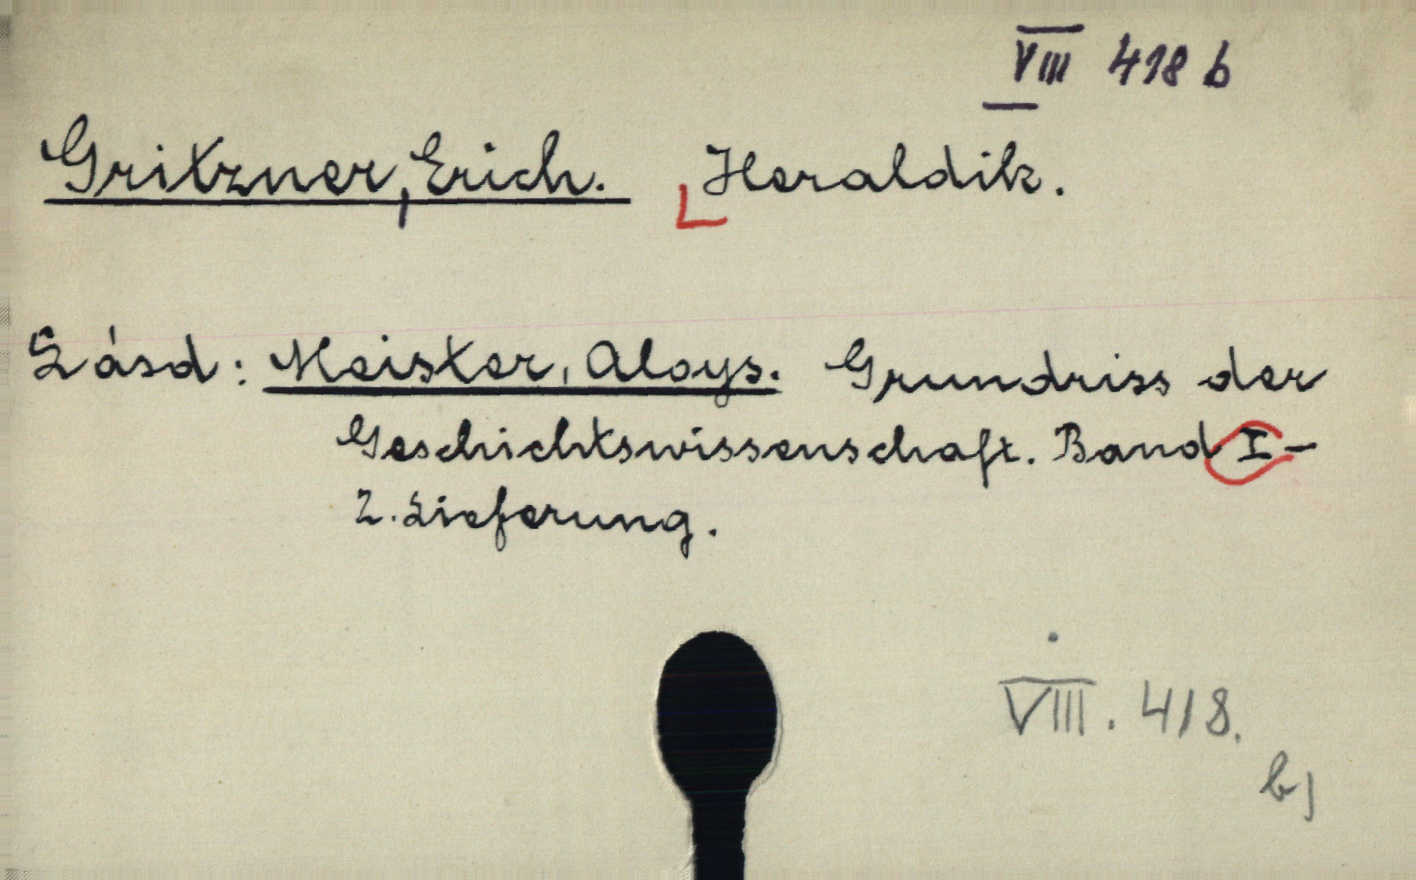 VIII 418 b
Gritzner, Erich. Heraldik.
Lásd: Meister, Aloys. Grundriss der
Geschichtswissenschaft. Band I-
2. Lieferung.
VIII. 418.
b)